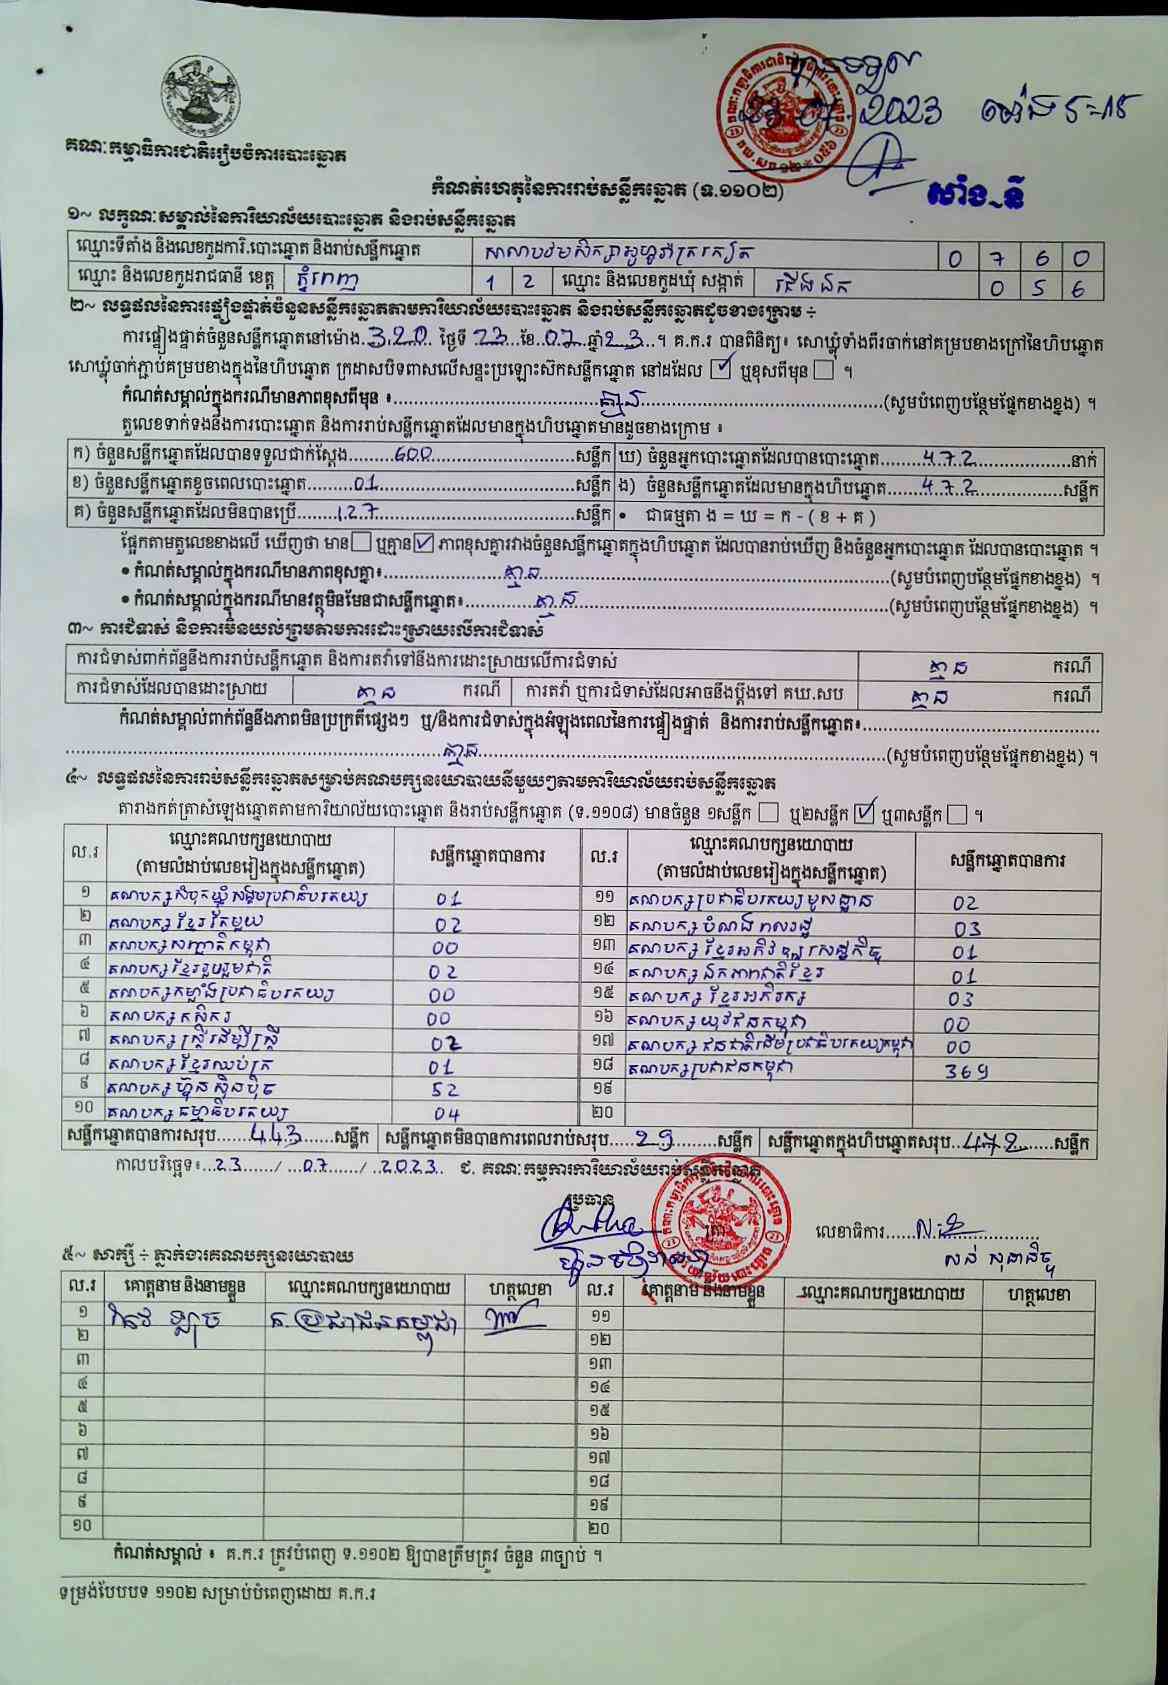 គណៈកម្មាធិការជាតិរៀបចំការបោះឆ្នោត
បានទទួល
23 07 2023 ម៉ោង 5-15
សាំង-នី
កំណត់ហេតុនៃការរាប់សន្លឹកឆ្នោត (ទ.១១០២)
១~ លក្ខណៈសម្គាល់នៃការិយាល័យបោះឆ្នោត និងរាប់សន្លឹកឆ្នោត
ឈ្មោះទីតាំង និងលេខកូដការិ.បោះឆ្នោត និងរាប់សន្លឹកឆ្នោត 0 7 6 0
ឈ្មោះ និងលេខកូដរាជធានី ខេត្ត ភ្នំពេញ 1 2 ឈ្មោះ និងលេខកូដឃុំ សង្កាត់ ជើងឯក 0 5 6
២~ លទ្ធផលនៃការផ្ទៀងផ្ទាត់ចំនួនសន្លឹកឆ្នោតតាមការិយាល័យបោះឆ្នោត និងរាប់សន្លឹកឆ្នោតដូចខាងក្រោម ÷
ការផ្ទៀងផ្ទាត់ចំនួនសន្លឹកឆ្នោតនៅម៉ោង 3.20 ថ្ងៃទី 23 ខែ 07 ឆ្នាំ 23 ។ គ.ក.រ បានពិនិត្យ៖ សោឃ្លុំទាំងពីរចាក់នៅគម្របខាងក្រៅនៃហិបឆ្នោត
សោឃ្លុំចាក់ភ្ជាប់គម្របខាងក្នុងនៃហិបឆ្នោត ក្រដាសបិទពាសលើសន្ទះប្រឡោះស៊កសន្លឹកឆ្នោត នៅដដែល ☑ ឬខុសពីមុន ☐ ។
កំណត់សម្គាល់ក្នុងករណីមានភាពខុសពីមុន ៖ គ្មាន (សូមបំពេញបន្ថែមផ្នែកខាងខ្នង) ។
តួលេខទាក់ទងនឹងការបោះឆ្នោត និងការរាប់សន្លឹកឆ្នោតដែលមានក្នុងហិបឆ្នោតមានដូចខាងក្រោម ៖
ក) ចំនួនសន្លឹកឆ្នោតដែលបានទទួលជាក់ស្តែង 600 សន្លឹក ឃ) ចំនួនអ្នកបោះឆ្នោតដែលបានបោះឆ្នោត 472 នាក់
ខ) ចំនួនសន្លឹកឆ្នោតខូចពេលបោះឆ្នោត 01 សន្លឹក ង) ចំនួនសន្លឹកឆ្នោតដែលមានក្នុងហិបឆ្នោត 472 សន្លឹក
គ) ចំនួនសន្លឹកឆ្នោតដែលមិនបានប្រើ 127 សន្លឹក • ជាធម្មតា ង = ឃ = ក - ( ខ + គ )
ផ្អែកតាមតួលេខខាងលើ ឃើញថា មាន ☐ ឬគ្មាន ☑ ភាពខុសគ្នារវាងចំនួនសន្លឹកឆ្នោតក្នុងហិបឆ្នោត ដែលបានរាប់ឃើញ និងចំនួនអ្នកបោះឆ្នោត ដែលបានបោះឆ្នោត ។
• កំណត់សម្គាល់ក្នុងករណីមានភាពខុសគ្នា៖ គ្មាន (សូមបំពេញបន្ថែមផ្នែកខាងខ្នង) ។
• កំណត់សម្គាល់ក្នុងករណីមានវត្ថុមិនមែនជាសន្លឹកឆ្នោត៖ គ្មាន (សូមបំពេញបន្ថែមផ្នែកខាងខ្នង) ។
៣~ ការជំទាស់ និងការមិនយល់ព្រមតាមការដោះស្រាយលើការជំទាស់
ការជំទាស់ពាក់ព័ន្ធនឹងការរាប់សន្លឹកឆ្នោត និងការតវ៉ាទៅនឹងការដោះស្រាយលើការជំទាស់ គ្មាន ករណី
ការជំទាស់ដែលបានដោះស្រាយ គ្មាន ករណី ការតវ៉ា ឬការជំទាស់ដែលអាចនឹងប្តឹងទៅ គឃ.សប គ្មាន ករណី
កំណត់សម្គាល់ពាក់ព័ន្ធនឹងភាពមិនប្រក្រតីផ្សេងៗ ឬ/និងការជំទាស់ក្នុងអំឡុងពេលនៃការផ្ទៀងផ្ទាត់ និងការរាប់សន្លឹកឆ្នោត៖
គ្មាន (សូមបំពេញបន្ថែមផ្នែកខាងខ្នង) ។
៤~ លទ្ធផលនៃការរាប់សន្លឹកឆ្នោតសម្រាប់គណបក្សនយោបាយនីមួយៗតាមការិយាល័យរាប់សន្លឹកឆ្នោត
តារាងកត់ត្រាសំឡេងឆ្នោតតាមការិយាល័យបោះឆ្នោត និងរាប់សន្លឹកឆ្នោត (ទ.១១០៨) មានចំនួន ១សន្លឹក ☐ ឬ២សន្លឹក ☑ ឬ៣សន្លឹក ☐ ។
ល.រ ឈ្មោះគណបក្សនយោបាយ (តាមលំដាប់លេខរៀងក្នុងសន្លឹកឆ្នោត) សន្លឹកឆ្នោតបានការ ល.រ ឈ្មោះគណបក្សនយោបាយ (តាមលំដាប់លេខរៀងក្នុងសន្លឹកឆ្នោត) សន្លឹកឆ្នោតបានការ
១ គណបក្សសំបុកឃ្មុំសង្គមប្រជាធិបតេយ្យ 01 ១១ គណបក្សប្រជាធិបតេយ្យមូលដ្ឋាន 02
២ គណបក្សខ្មែរតែមួយ 02 ១២ គណបក្សបំណងពលរដ្ឋ 03
៣ គណបក្សសញ្ជាតិកម្ពុជា 00 ១៣ គណបក្សខ្មែរអភិវឌ្ឍសេដ្ឋកិច្ច 01
៤ គណបក្សខ្មែររួបរួមជាតិ 02 ១៤ គណបក្សឯកភាពជាតិខ្មែរ 01
៥ គណបក្សកម្លាំងប្រជាធិបតេយ្យ 00 ១៥ គណបក្សខ្មែរអភិរក្ស 03
៦ គណបក្សកសិករ 00 ១៦ គណបក្សយុវជនកម្ពុជា 00
៧ គណបក្សស្ត្រីដើម្បីស្ត្រី 02 ១៧ គណបក្សជនជាតិដើមប្រជាធិបតេយ្យកម្ពុជា 00
៨ គណបក្សខ្មែរឈប់ក្រ 01 ១៨ គណបក្សប្រជាជនកម្ពុជា 369
៩ គណបក្សហ៊្វុនស៊ិនប៉ិច 52 ១៩
១០ គណបក្សធម្មាធិបតេយ្យ 04 ២០
សន្លឹកឆ្នោតបានការសរុប 443 សន្លឹក សន្លឹកឆ្នោតមិនបានការពេលរាប់សរុប 29 សន្លឹក សន្លឹកឆ្នោតក្នុងហិបឆ្នោតសរុប 472 សន្លឹក
កាលបរិច្ឆេទ៖ 23 / 07 / 2023 ជ. គណៈកម្មការការិយាល័យរាប់សន្លឹកឆ្នោត
ប្រធាន
ត្រា លេខាធិការ
៥~ សាក្សី ÷ ភ្នាក់ងារគណបក្សនយោបាយ
ល.រ គោត្តនាម និងនាមខ្លួន ឈ្មោះគណបក្សនយោបាយ ហត្ថលេខា ល.រ គោត្តនាម និងនាមខ្លួន ឈ្មោះគណបក្សនយោបាយ ហត្ថលេខា
១ គ.ប្រជាជនកម្ពុជា ១១
២ ១២
៣ ១៣
៤ ១៤
៥ ១៥
៦ ១៦
៧ ១៧
៨ ១៨
៩ ១៩
១០ ២០
កំណត់សម្គាល់ ៖ គ.ក.រ ត្រូវបំពេញ ទ.១១០២ ឱ្យបានត្រឹមត្រូវ ចំនួន ៣ច្បាប់ ។
ទម្រង់បែបបទ ១១០២ សម្រាប់បំពេញដោយ គ.ក.រ